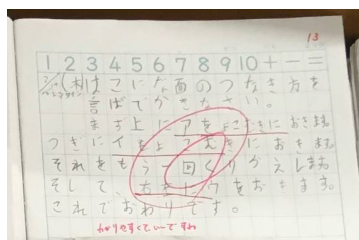 13
1 2 3 4 5 6 7 8 9 10 + - =
はこになる面のつなぎ方を
言ばでかきなさい。
まず上にアをよこむきにおきます。
つぎにイをよこむきにおきます。
それをもう一回くりかえします。
そして、ウをおきます。
これでおわりです。
わかりやすくていいですね